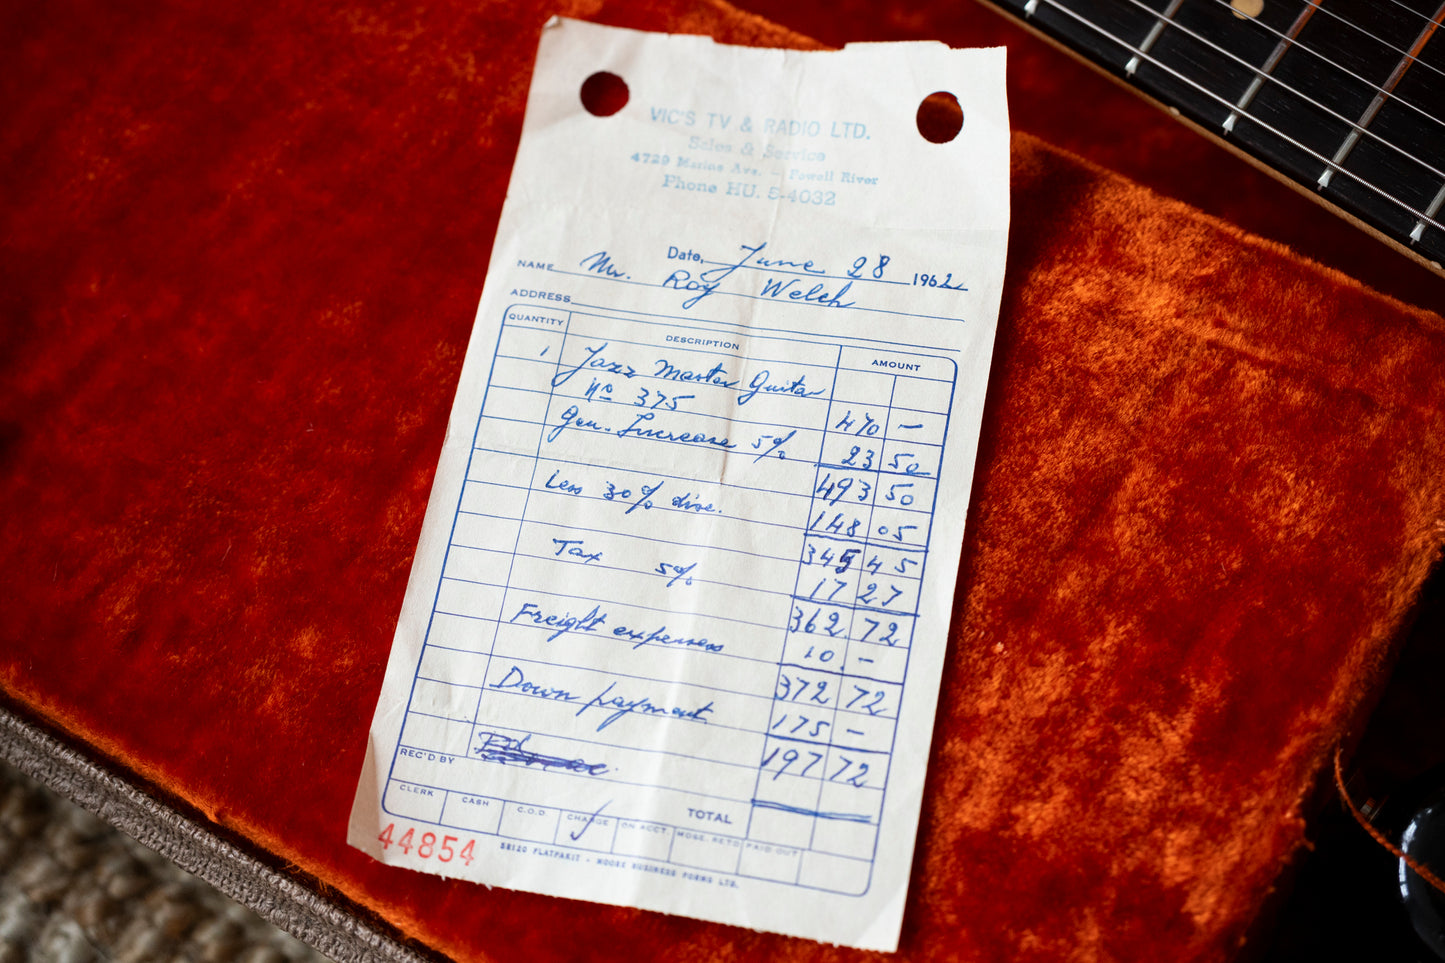 VIC'S TV & RADIO LTD.
Sales & Service
4729 Marine Ave. - Powell River
Phone HU. 5-4032
Date, June 28 1962
NAME Mr. Roy Welch
ADDRESS
QUANTITY DESCRIPTION AMOUNT
1 Jazz Master Guitar
No 375 470 —
Gen. Increase 5% 23 50
493 50
Less 30% disc. 148 05
345 45
Tax 5% 17 27
362 72
Freight expenses 10. —
372 72
Down payment 175 —
197 72
REC'D BY
TOTAL
CLERK CASH C.O.D. CHARGE ON ACCT. MDSE. RETD PAID OUT
44854
FLATPAKIT - MOORE BUSINESS FORMS LTD.